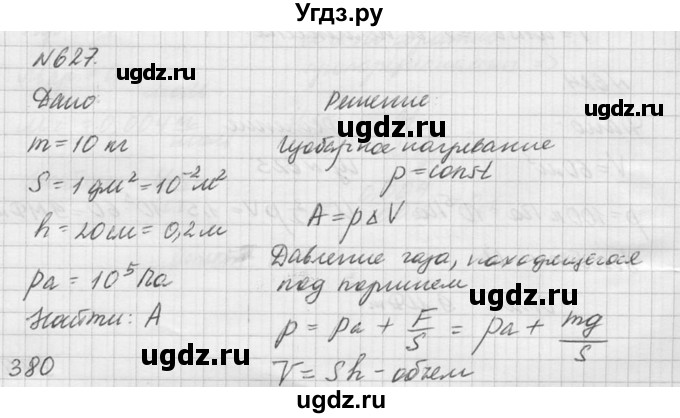 Угдз.ру
№627.
Дано:
m = 10 кг
S = 1 дм² = 10⁻² м²
h = 20 см = 0,2 м
pa = 10⁵ Па
Найти: A
380
Решение:
Изобарное нагревание
p = const
A = pΔV
Давление газа, находящегося
под поршнем
p = pa + F/S = pa + mg/S
V = Sh - объем
ugdz.ru
ugdz.ru
ugdz.ru
ugdz.ru
ugdz.ru
ugdz.ru
ugdz.ru
ugdz.ru
ugdz.ru
ugdz.ru